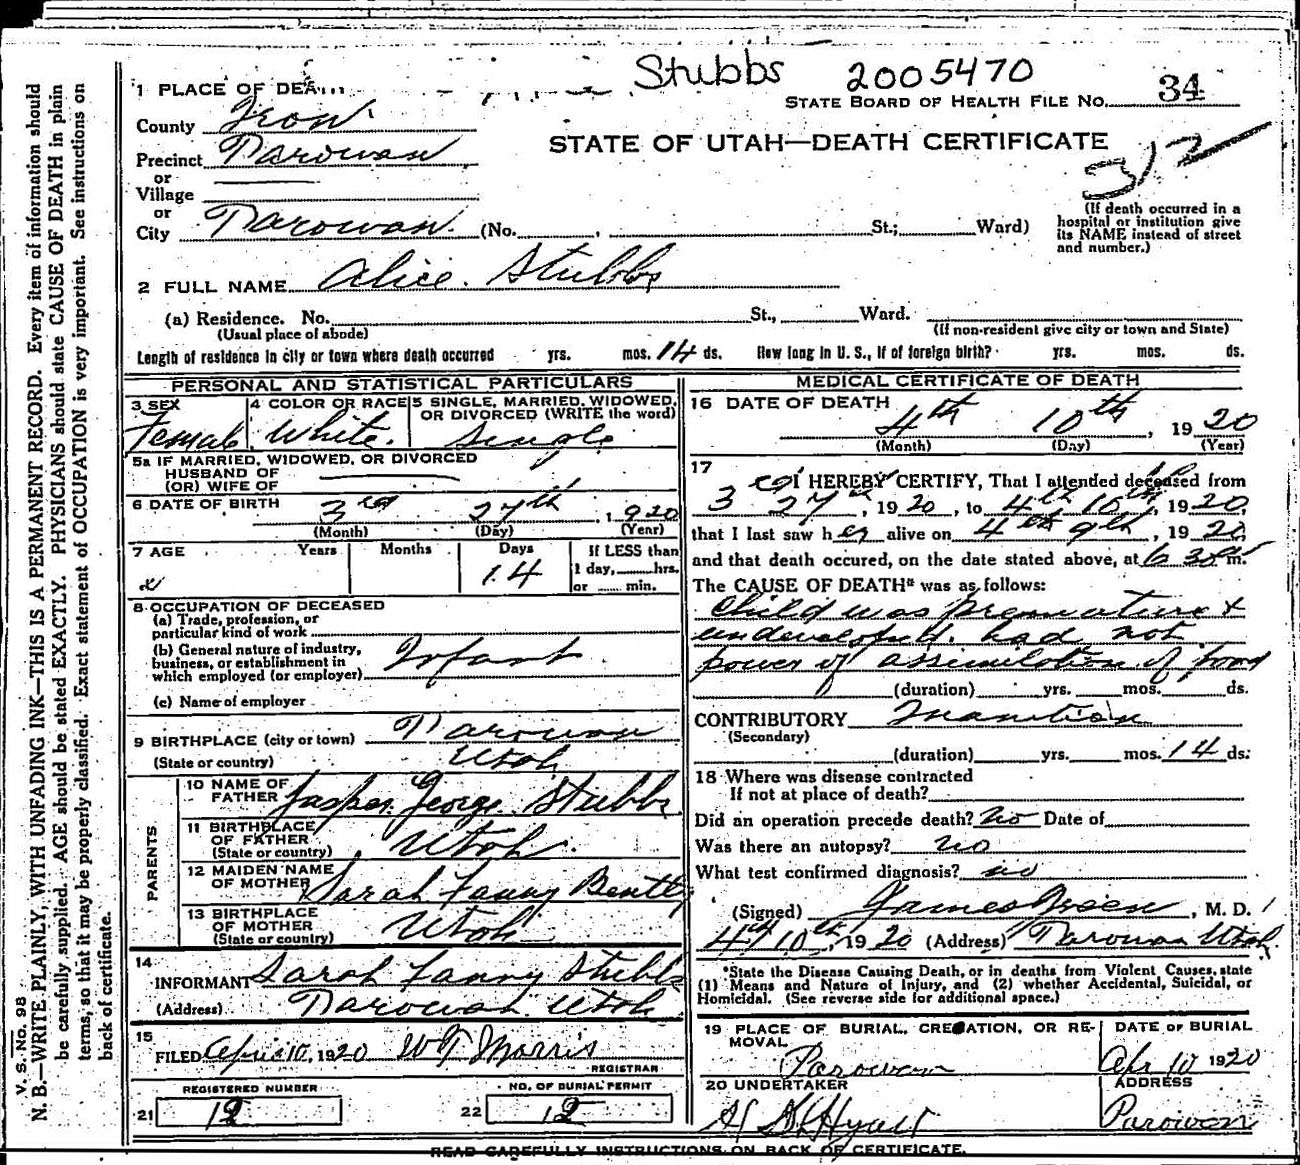 Stubbs 2005470
1 PLACE OF DEA
STATE BOARD OF HEALTH FILE No. 34
County Iron
STATE OF UTAH—DEATH CERTIFICATE
Precinct Parowan
or
Village
or
City Parowan. (No. , St.; Ward)
(If death occurred in a
hospital or institution give
its NAME instead of street
and number.)
2 FULL NAME Alice. Stubbs
(a) Residence. No. St., Ward.
(Usual place of abode) (If non-resident give city or town and State)
Length of residence in city or town where death occurred yrs. mos. 14 ds. How long in U. S., if of foreign birth? yrs. mos. ds.
PERSONAL AND STATISTICAL PARTICULARS
3 SEX
Female
4 COLOR OR RACE
White.
5 SINGLE, MARRIED, WIDOWED,
OR DIVORCED (WRITE the word)
Single
5a IF MARRIED, WIDOWED, OR DIVORCED
HUSBAND OF
(OR) WIFE OF
6 DATE OF BIRTH 3rd 27th, 1920
(Month) (Day) (Year)
7 AGE Years Months Days If LESS than
14 1 day, hrs.
or min.
8 OCCUPATION OF DECEASED
(a) Trade, profession, or
particular kind of work
(b) General nature of industry,
business, or establishment in
which employed (or employer) Infant
(c) Name of employer
9 BIRTHPLACE (city or town) Parowan
(State or country) Utah
PARENTS
10 NAME OF
FATHER Jasper George Stubbs
11 BIRTHPLACE
OF FATHER
(State or country) Utah.
12 MAIDEN NAME
OF MOTHER Sarah Fanny Bentley
13 BIRTHPLACE
OF MOTHER
(State or country) Utah
14
INFORMANT Sarah Fanny Stubbs
(Address) Parowan Utah
15
FILED Apr 10, 1920 WT Morris
REGISTRAR
REGISTERED NUMBER
21 12
NO. OF BURIAL PERMIT
22 12
MEDICAL CERTIFICATE OF DEATH
16 DATE OF DEATH
4th 10th, 1920
(Month) (Day) (Year)
17
I HEREBY CERTIFY, That I attended deceased from
3rd 27th, 1920, to 4th 10th, 1920.
that I last saw her alive on 4th 9th, 1920
and that death occured, on the date stated above, at 6 30 m.
The CAUSE OF DEATH* was as follows:
Child was premature &
undeveloped. had not
power of assimilation of food
(duration) yrs. mos. ds.
CONTRIBUTORY Inanition
(Secondary)
(duration) yrs. mos. 14 ds.
18 Where was disease contracted
If not at place of death?
Did an operation precede death? No Date of
Was there an autopsy? no
What test confirmed diagnosis? no
(Signed) James Green, M. D.
4th 10th, 1920 (Address) Parowan Utah.
*State the Disease Causing Death, or in deaths from Violent Causes, state
(1) Means and Nature of Injury, and (2) whether Accidental, Suicidal, or
Homicidal. (See reverse side for additional space.)
19 PLACE OF BURIAL, CREMATION, OR RE-
MOVAL
Parowan
DATE OF BURIAL
Apr 10 1920
20 UNDERTAKER
Hyatt
ADDRESS
Parowan
READ CAREFULLY INSTRUCTIONS ON BACK OF CERTIFICATE.
V. S. No. 98
N. B.—WRITE PLAINLY, WITH UNFADING INK—THIS IS A PERMANENT RECORD. Every item of information should
be carefully supplied. AGE should be stated EXACTLY. PHYSICIANS should state CAUSE OF DEATH in plain
terms, so that it may be properly classified. Exact statement of OCCUPATION is very important. See instructions on
back of certificate.